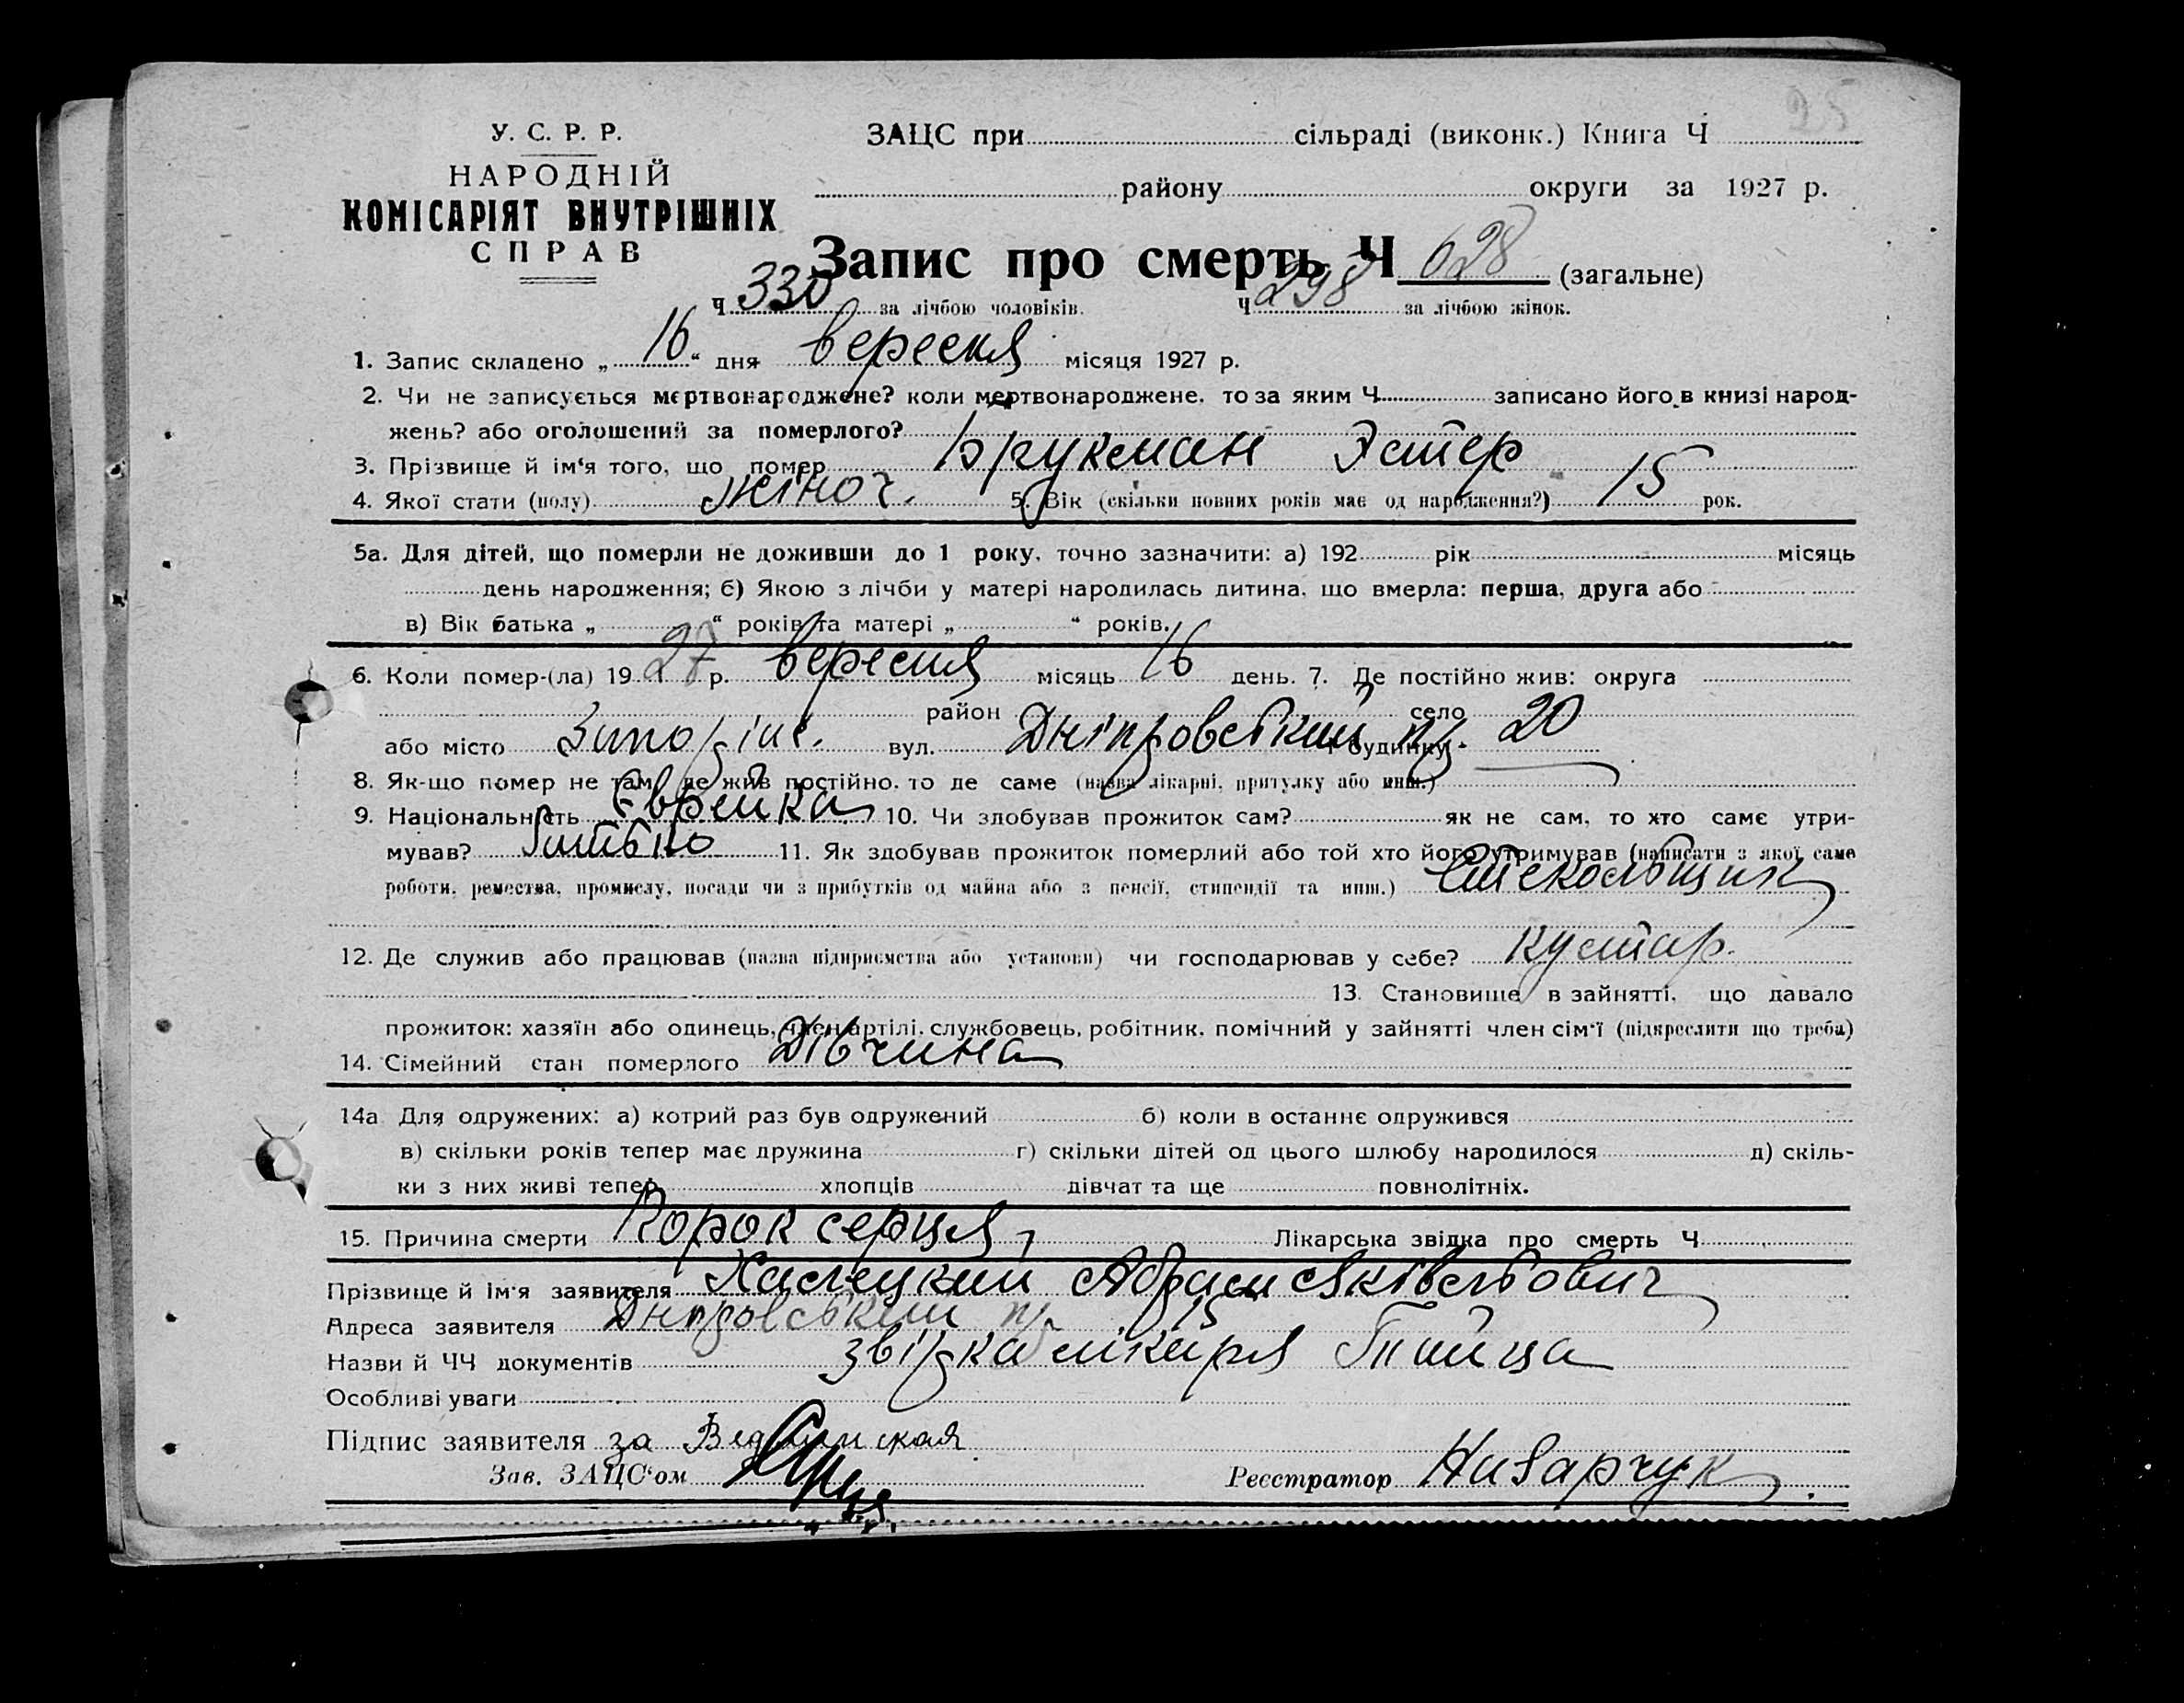 25
У. С. Р. Р.
НАРОДНІЙ
КОМІСАРІЯТ ВНУТРІШНІХ
СПРАВ
ЗАЦС при сільраді (виконк.) Книга Ч
району округи за 1927 р.
Запис про смерть Ч 628 (загальне)
Ч 330 за лічбою чоловіків. Ч 298 за лічбою жінок.
1. Запис складено „ 16 “ дня вересня місяця 1927 р.
2. Чи не записується мертвонароджене? коли мертвонароджене, то за яким Ч записано його в книзі народ-
жень? або оголошений за померлого?
3. Прізвище й ім‘я того, що помер Брукман Эстер
4. Якої стати (полу) жіноч. 5. Вік (скільки повних років має од народження?) 15 рок.
5а. Для дітей, що померли не доживши до 1 року, точно зазначити: а) 192 рік місяць
день народження; б) Якою з лічби у матері народилась дитина, що вмерла: перша, друга або
в) Вік батька „ “ років та матері „ “ років.
6. Коли помер-(ла) 1927 р. вересня місяць 16 день. 7. Де постійно жив: округа
район село
або місто Запоріж. вул. Дніпровський пр будинку 20
8. Як-що помер не там, де жив постійно, то де саме (назва лікарні, притулку або инш.)
9. Національність Єврейка 10. Чи здобував прожиток сам? як не сам, то хто саме утри-
мував? батько 11. Як здобував прожиток померлий або той хто його утримував (написати з якої саме
роботи, ремества, промислу, посади чи з прибутків од майна або з пенсії, стипендії та инш.) Стекольщик
12. Де служив або працював (назва підприємства або установи) чи господарював у себе? кустар.
13. Становище в зайнятті, що давало
прожиток: хазяїн або одинець, член артілі, службовець, робітник, помічний у зайнятті член сім‘ї (підкреслити що треба)
14. Сімейний стан померлого Дівчина
14а Для одружених: а) котрий раз був одружений б) коли в останнє одружився
в) скільки років тепер має дружина г) скільки дітей од цього шлюбу народилося д) скіль-
ки з них живі тепер хлопців дівчат та ще повнолітніх.
15. Причина смерти Порок серця, Лікарська звідка про смерть Ч
Прізвище й Ім‘я заявителя Абрам
Адреса заявителя Дніпровський пр 15
Назви й ЧЧ документів звідка лікаря
Особливі уваги
Підпис заявителя за
Зав. ЗАЦС‘ом Реєстратор